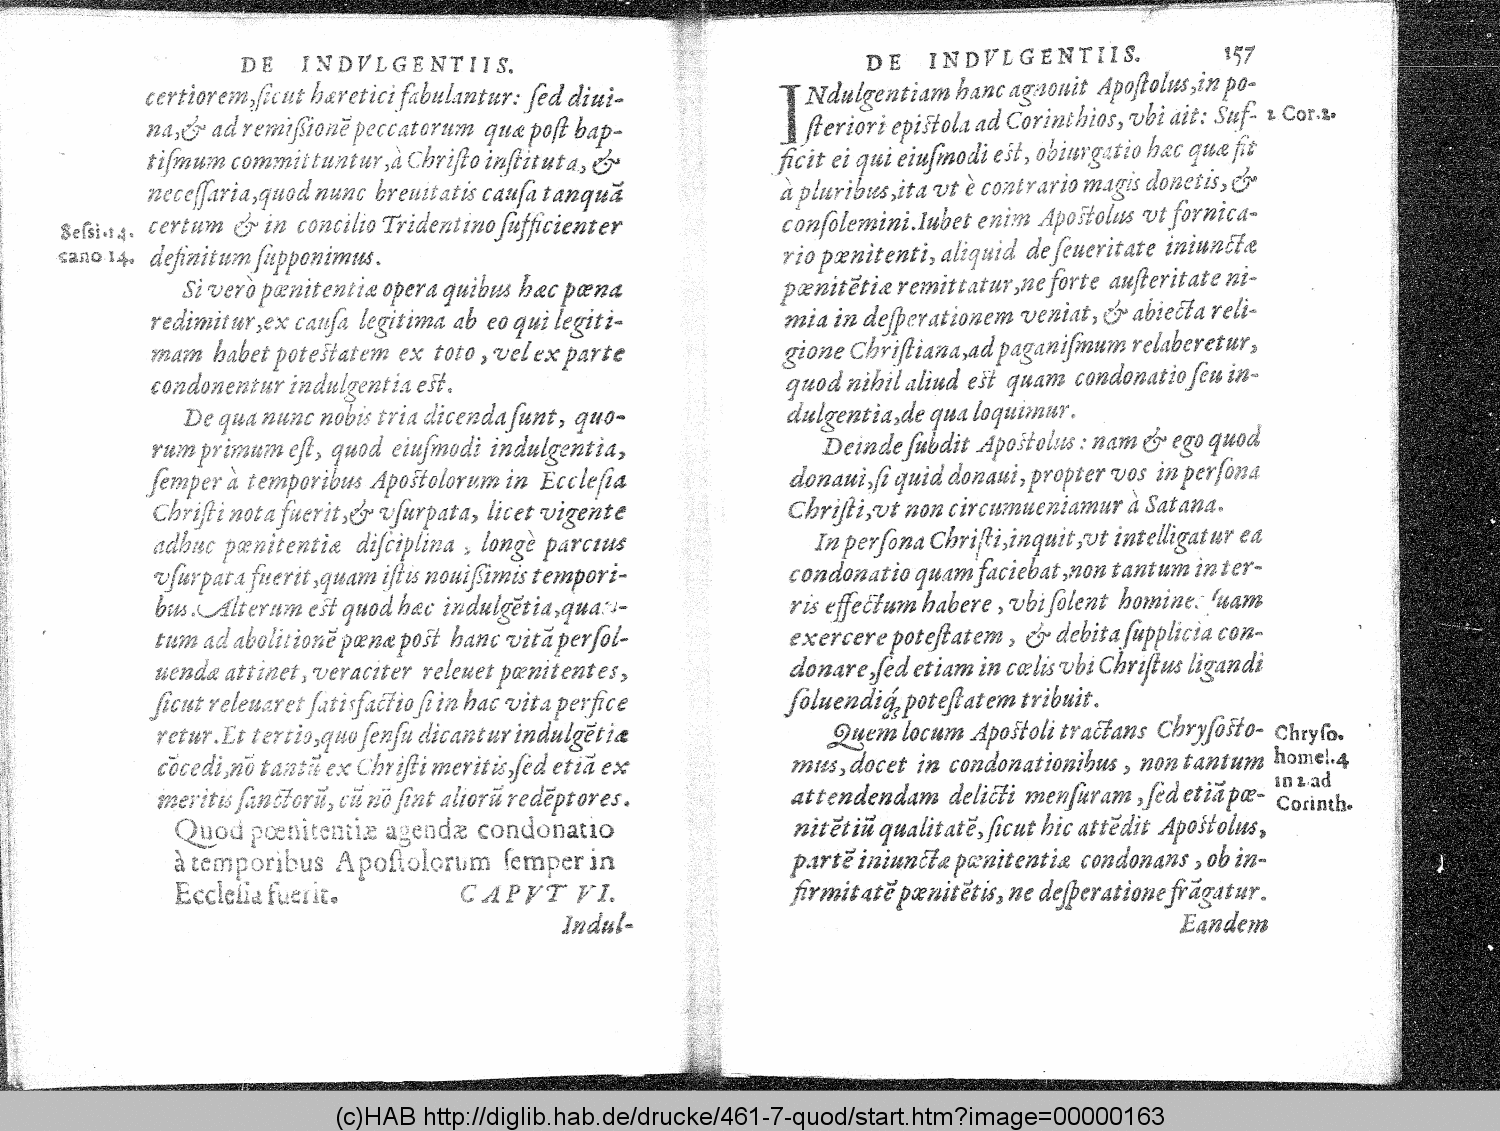 DE INDVLGENTIIS.
certiorem,ſicut hæretici fabulantur: ſed diui-
na,& ad remiſsionē peccatorum quæ poſt bap-
tiſmum committuntur,à Chriſto inſtituta, &
neceſſaria,quod nunc breuitatis cauſa tanquā
Seſsi.14. certum & in concilio Tridentino ſufficienter
cano 14. definitum ſupponimus.
Si verò pœnitentiæ opera quibus hæc pœna
redimitur,ex cauſa legitima ab eo qui legiti-
mam habet poteſtatem ex toto, vel ex parte
condonentur indulgentia eſt.
De qua nunc nobis tria dicenda ſunt, quo-
rum primum eſt, quod eiuſmodi indulgentia,
ſemper à temporibus Apoſtolorum in Eccleſia
Chriſti nota fuerit,& vſurpata, licet vigente
adhuc pœnitentiæ diſciplina, longè parcius
vſurpata fuerit,quam iſtis nouiſsimis tempori-
bus. Alterum eſt quod hæc indulgētia,quan-
tum ad abolitionē pœnæ poſt hanc vitā perſol-
uendæ attinet, veraciter releuet pœnitentes,
ſicut releuaret ſatisfactio ſi in hac vita perfice
retur. Et tertio,quo ſenſu dicantur indulgētiæ
cōcedi,nō tantū ex Chriſti meritis,ſed etiā ex
meritis ſanctorū, cū nō ſint aliorū redēptores.
Quod pœnitentiæ agendæ condonatio
à temporibus Apoſtolorum ſemper in
Eccleſia fuerit. CAPVT VI.
Indul-
DE INDVLGENTIIS. 157
INdulgentiam hanc agnouit Apoſtolus,in po-
ſteriori epiſtola ad Corinthios, vbi ait: Suf- 2 Cor.2.
ficit ei qui eiuſmodi eſt, obiurgatio hæc quæ fit
à pluribus,ita vt è contrario magis donetis, &
conſolemini. Iubet enim Apoſtolus vt fornica-
rio pœnitenti, aliquid de ſeueritate iniunctæ
pœnitētiæ remittatur,ne forte auſteritate ni-
mia in deſperationem veniat, & abiecta reli-
gione Chriſtiana,ad paganiſmum relaberetur,
quod nihil aliud eſt quam condonatio ſeu in-
dulgentia,de qua loquimur.
Deinde ſubdit Apoſtolus: nam & ego quod
donaui,ſi quid donaui, propter vos in perſona
Chriſti,vt non circumueniamur à Satana.
In perſona Chriſti,inquit,vt intelligatur ea
condonatio quam faciebat,non tantum in ter-
ris effectum habere, vbi ſolent homines ſuam
exercere poteſtatem, & debita ſupplicia con-
donare,ſed etiam in cœlis vbi Chriſtus ligandi
ſoluendiq́; poteſtatem tribuit.
Quem locum Apoſtoli tractans Chryſoſto- Chryſo.
mus, docet in condonationibus, non tantum homel.4
attendendam delicti menſuram, ſed etiā pœ- in 2 ad
nitētiū qualitatē, ſicut hic attēdit Apoſtolus, Corinth.
partē iniunctæ pœnitentiæ condonans, ob in-
firmitatē pœnitētis, ne deſperatione frāgatur.
Eandem
(c)HAB http://diglib.hab.de/drucke/461-7-quod/start.htm?image=00000163